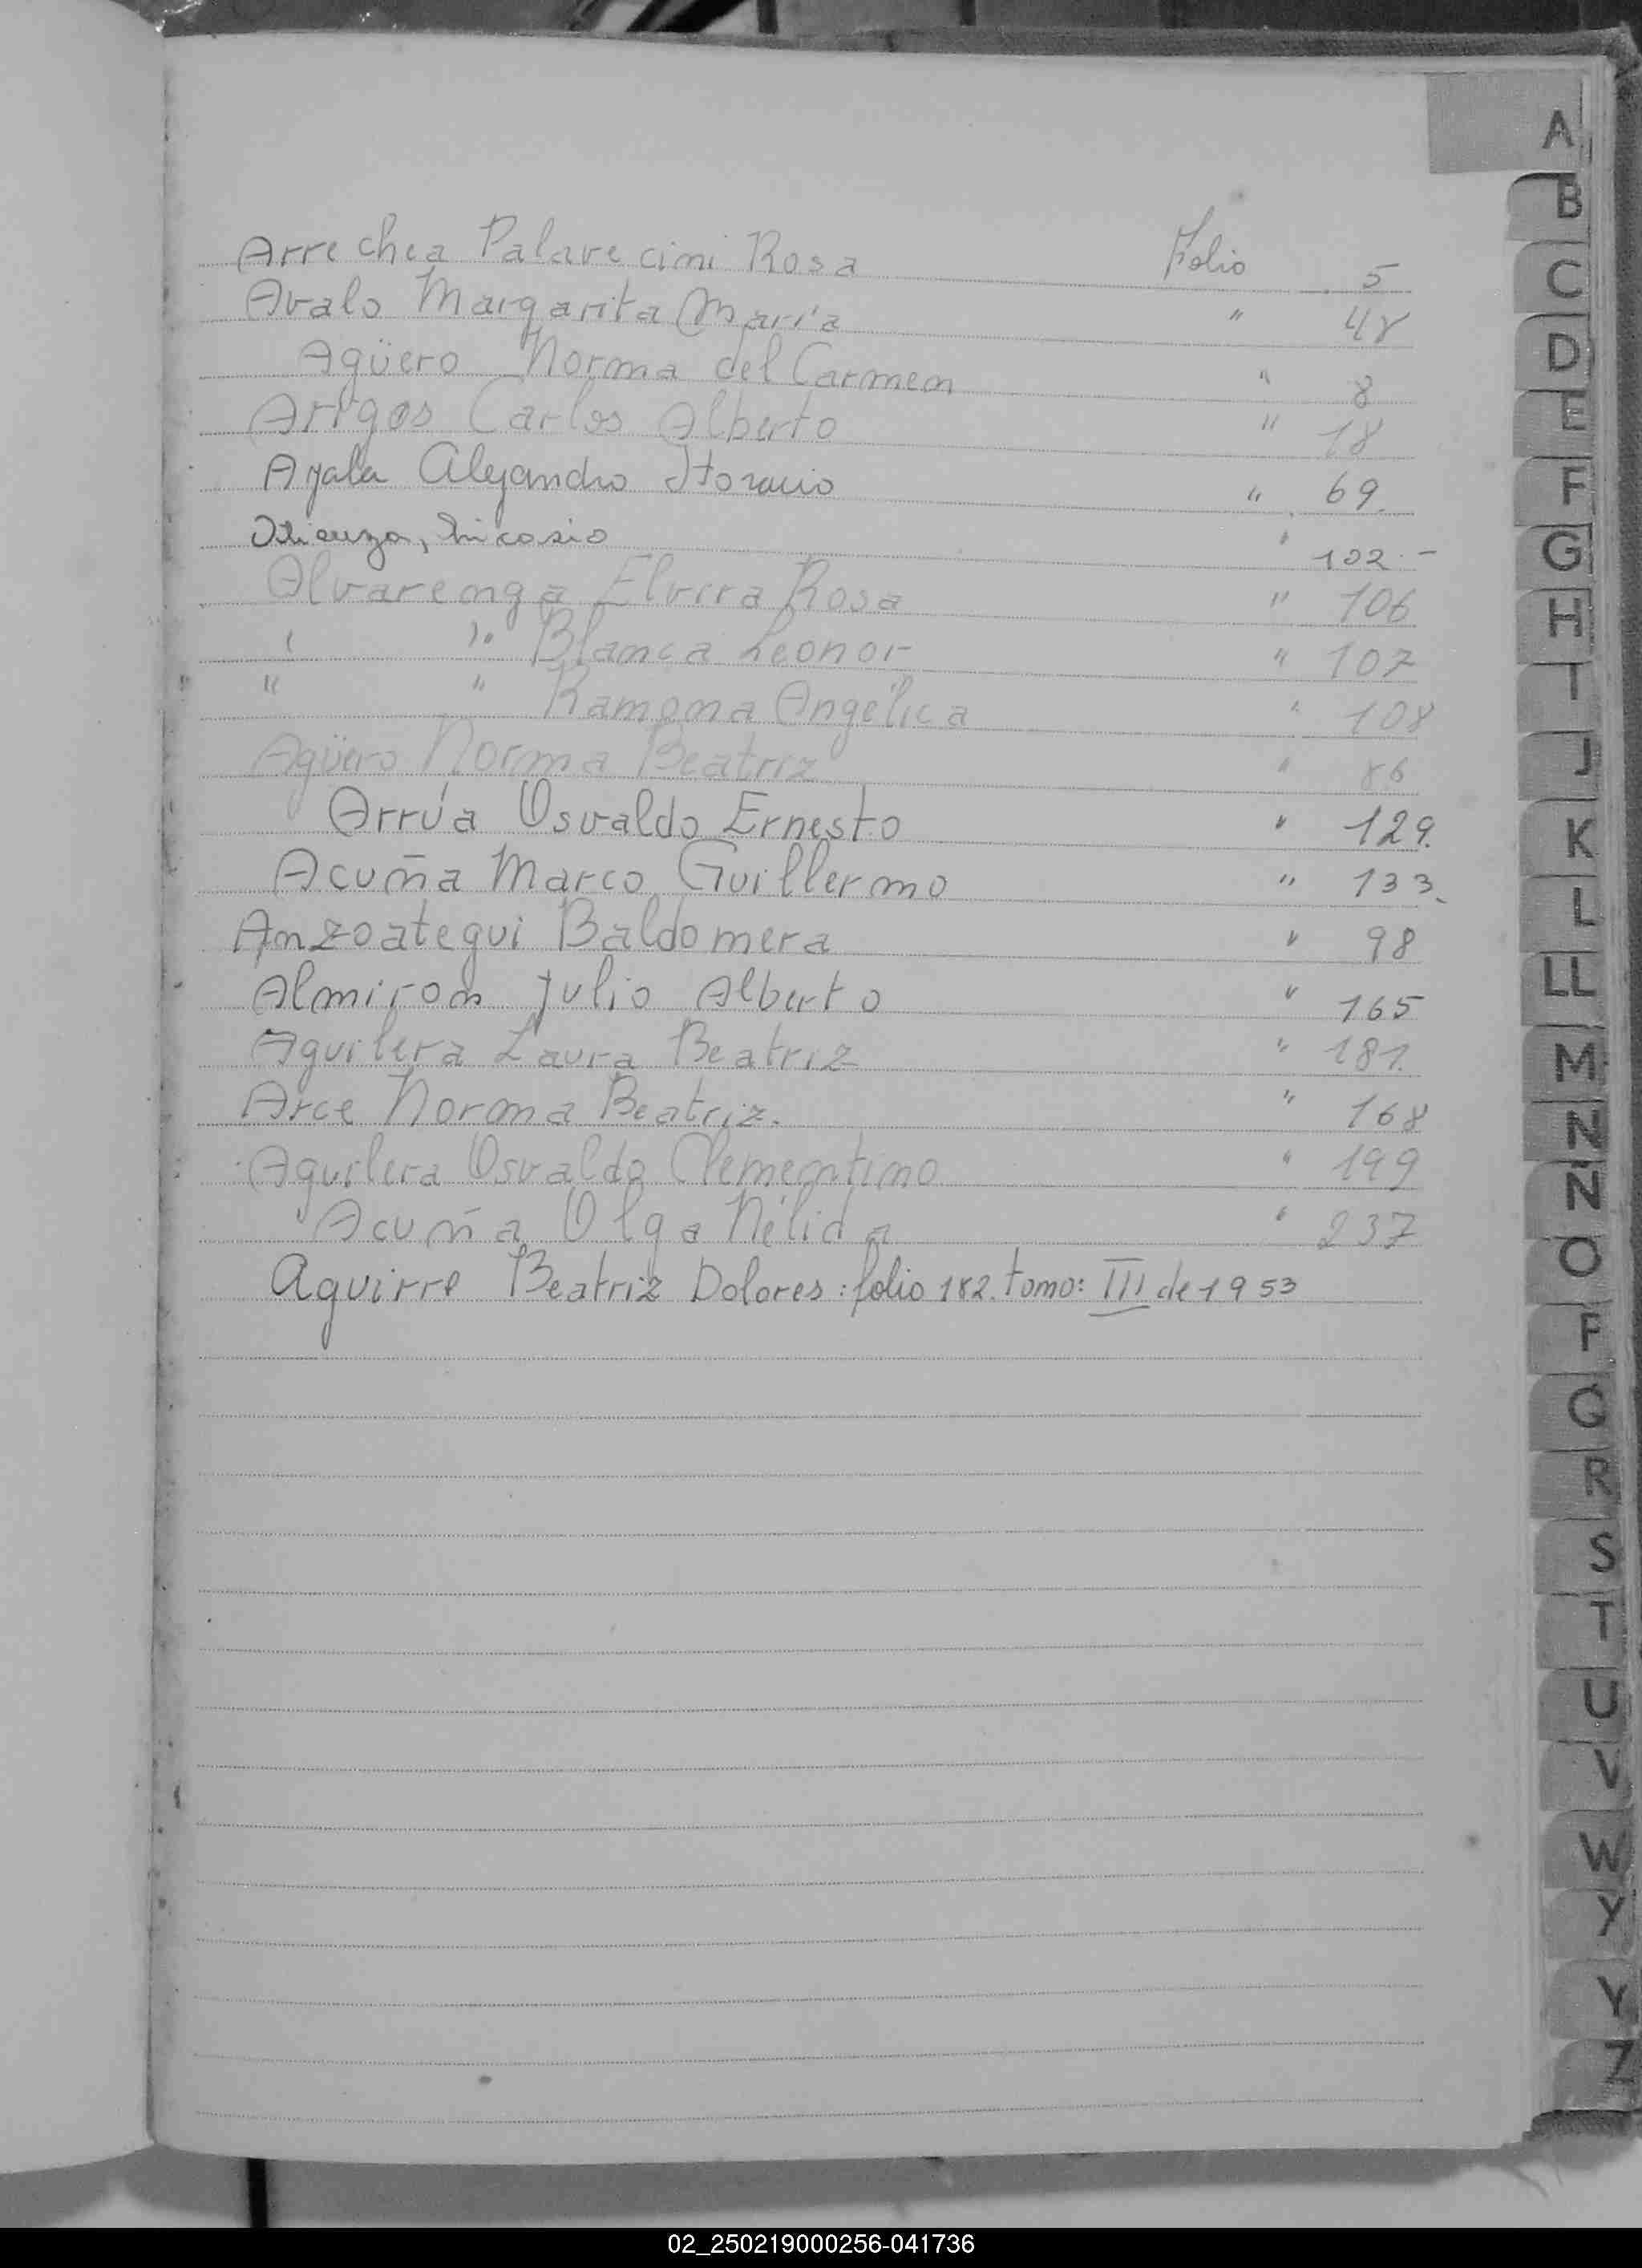 Arrechea Palavecini Rosa Folio 5
Avalo Margarita María " 48
Agüero Norma del Carmen " 8
Arigos Carlos Alberto " 18
Ayala Alejandro Horacio " 69.
Atienza, Nicasio " 102.-
Alvarenga Elvira Rosa " 106
" " Blanca Leonor " 107
" " Ramona Angélica " 108
Agüero Norma Beatriz " 86
Arrúa Osvaldo Ernesto " 129.
Acuña Marco Guillermo " 133.
Anzoategui Baldomera " 98
Almiron Julio Alberto " 165
Aguilera Laura Beatriz " 181.
Arce Norma Beatriz. " 168
Aguilera Osvaldo Clementino " 199
Acuña Olga Nélida " 237
Aguirre Beatriz Dolores: folio 182. tomo: III de 1953
A
B
C
D
E
F
G
H
I
J
K
L
LL
M
N
Ñ
O
P
Q
R
S
T
U
V
W
Y
Y
Z
02_250219000256-041736